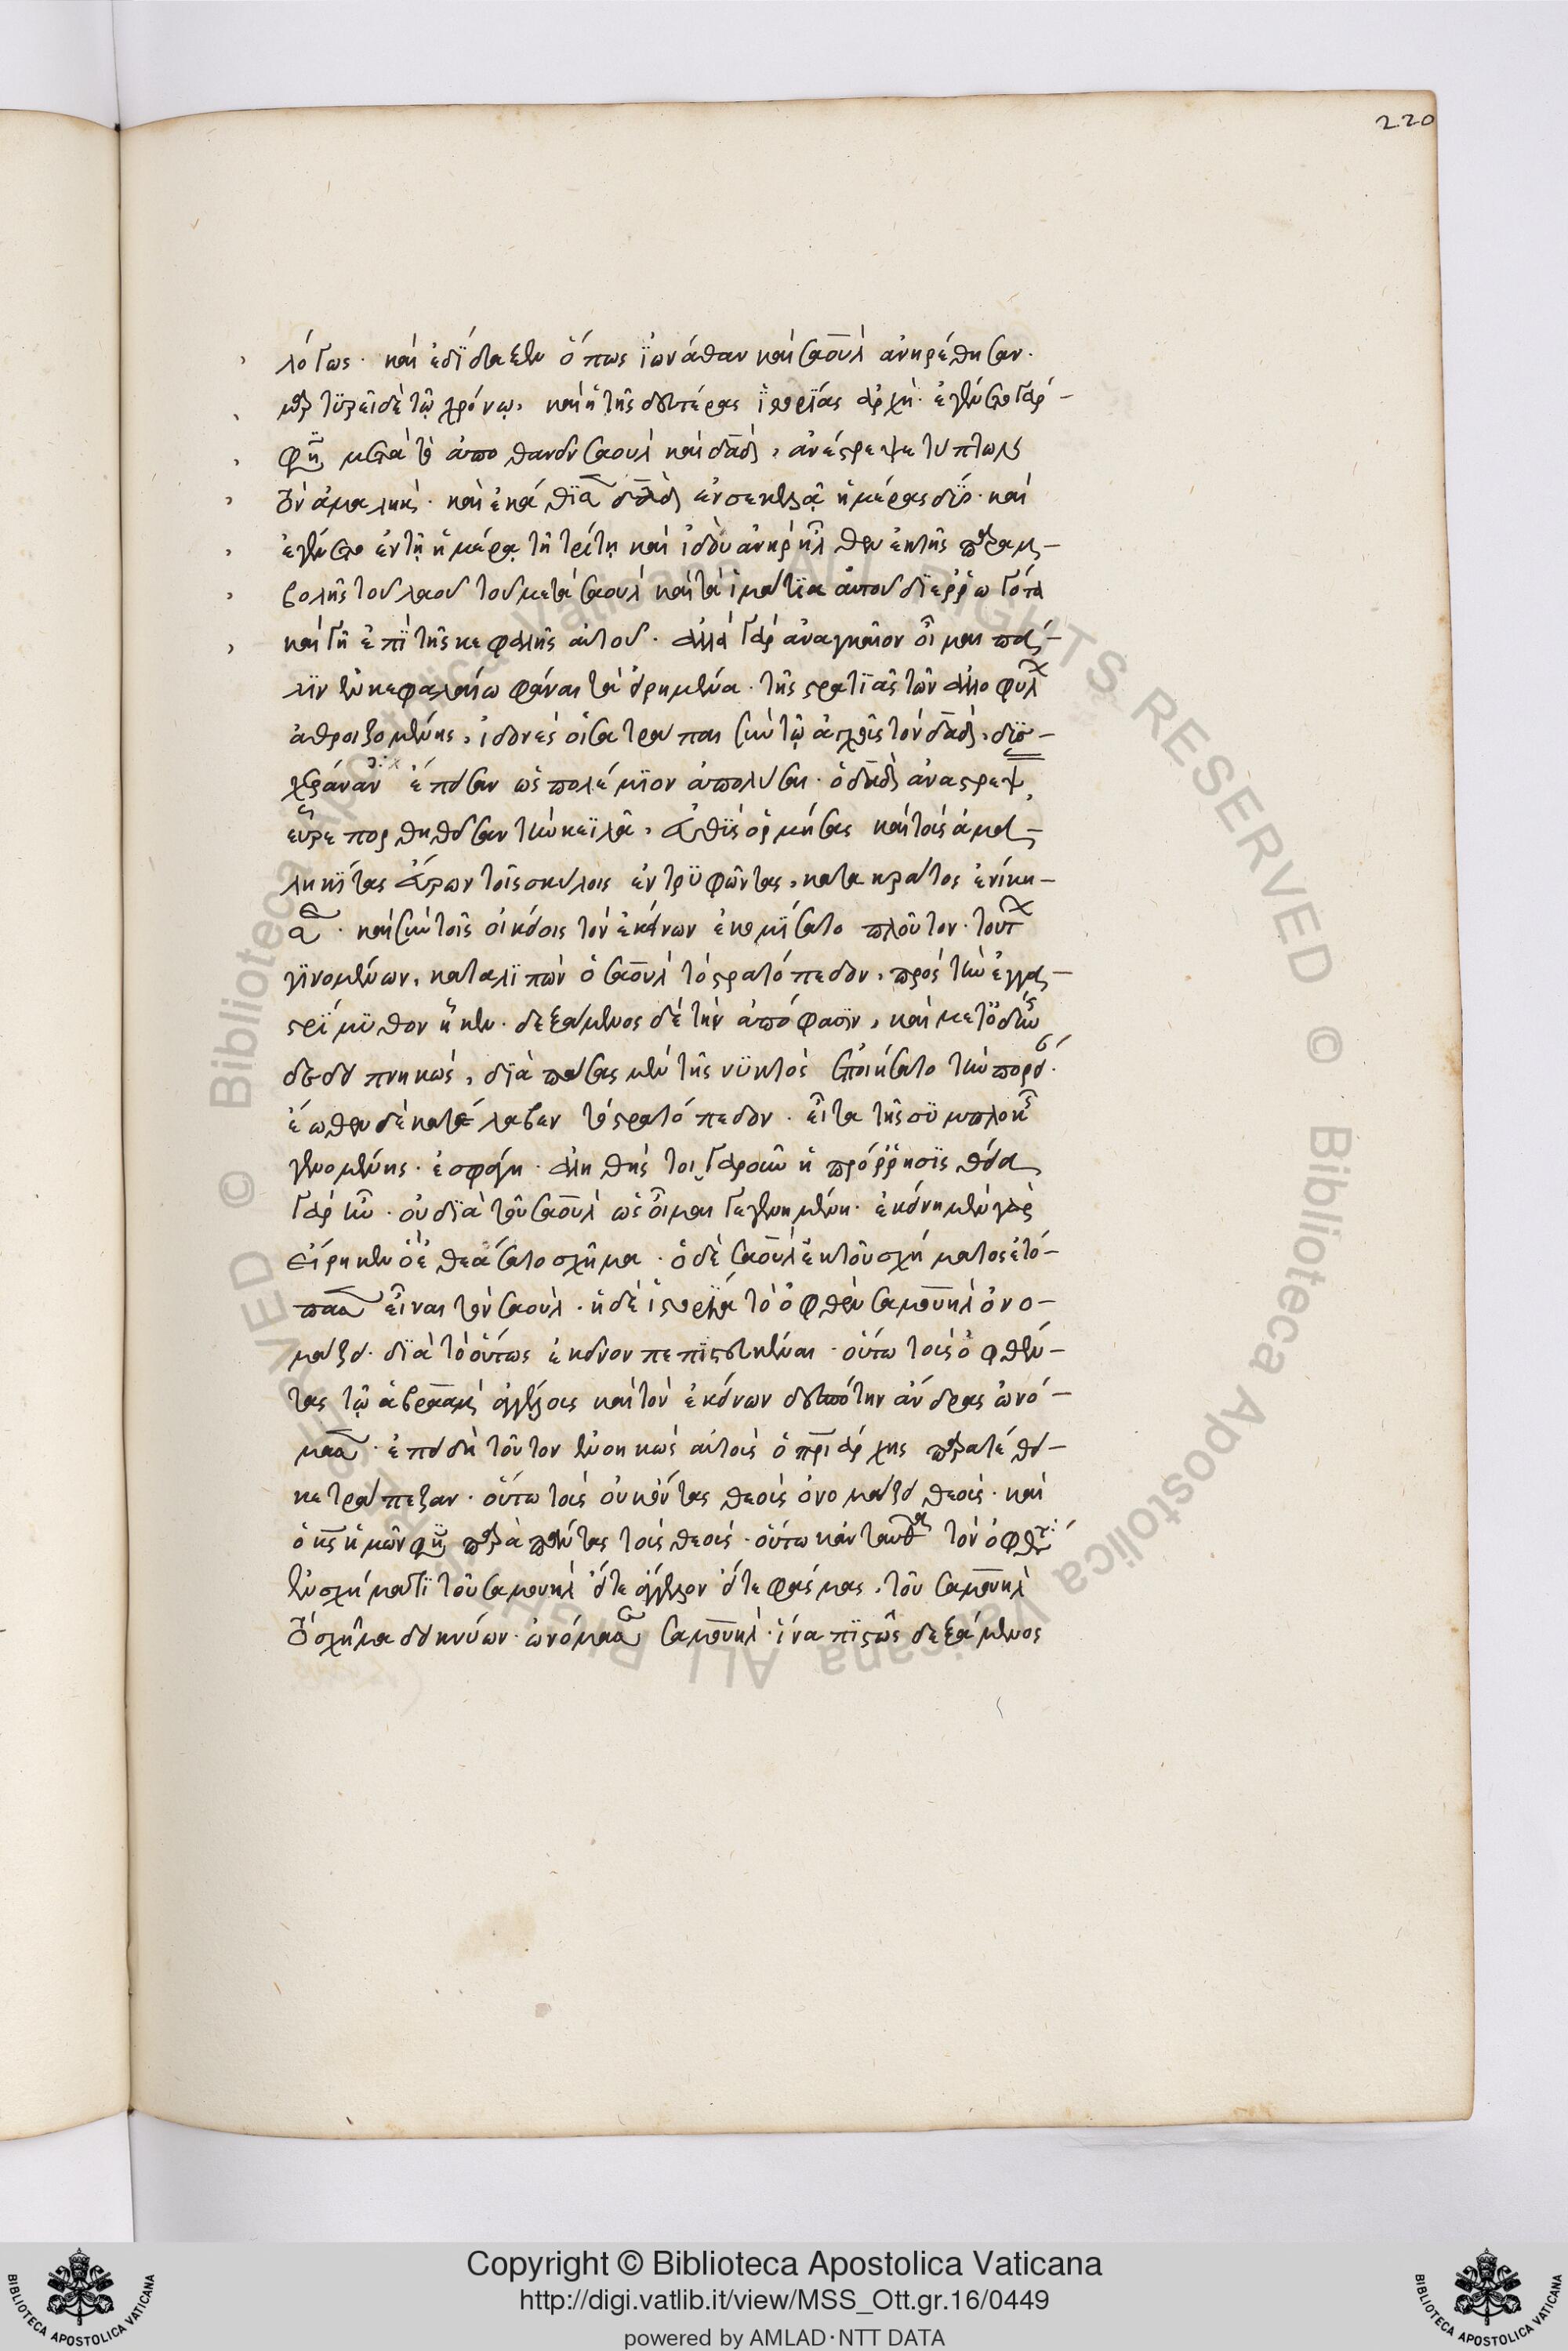 220
λόγως· καὶ ἐδίδαξεν ὅπως ϊωνάθαν καὶ σαοὺλ ἀνῃρέθησαν·
μαρτυρεῖ δὲ τῷ χρόνῳ, καὶ ἡ τῆς δευτέρας ἱστορίας ἀρχή· ἐγένετο γάρ
φησι μετὰ τὸ ἀποθανεῖν σαοὺλ καὶ δαδ, ἀνέστρεψε τύπτων
τὸν ἀμαλήκ· καὶ ἐκάθισε δαδ ἐν σεκελᾷ ἡμέρας δύο· καὶ
ἐγένετο ἐν τῇ ἡμέρᾳ τῇ τρίτῃ καὶ ἰδοὺ ἀνὴρ ἦλθεν ἐκ τῆς παρεμ-
βολῆς τοῦ λαοῦ τοῦ μετὰ σαοὺλ καὶ τὰ ἱμάτια αὐτοῦ διερρωγότα
καὶ γῆ ἐπὶ τῆς κεφαλῆς αὐτοῦ· ἀλλὰ γὰρ ἀναγκαῖον οἶμαι πά-
λιν ἐν κεφαλαίῳ φάναι τὰ εἰρημένα· τῆς στρατιᾶς τῶν ἀλλοφύλ
ἀθροιζομένης, ἰδόντες οἱ σατράπαι σὺν τῷ ἀγχοῦς τὸν δαδ, δυσ-
χεράναν ἔπεισαν ὡς πολέμιον ἀπολῦσαι· ὁ δὲ δαδ ἀναστρέψ
εὗρε πορθηθεῖσαν τὴν κεϊλά, αὖθις ὁρμήσας καὶ τοὺς ἀμα-
ληκίτας εὑρὼν τοῖς σκύλοις ἐντρυφῶντας, κατα κράτος ἐνίκη-
σε· καὶ σὺν τοῖς οἰκείοις τὸν ἐκείνων ἐκομίσατο πλοῦτον· τούτ
γινομένων, καταλιπὼν ὁ σαοὺλ τὸ στρατόπεδον, πρὸς τὴν ἐγγα-
στρίμυθον ἧκεν· δεξάμενος δὲ τὴν ἀπόφασιν, καὶ
δεδειπνηκὼς, διὰ πάσης μὲν τῆς νυκτὸς ἐποιήσατο τὴν πορεί
ἕωθεν δὲ κατέλαβεν τὸ στρατόπεδον· εἶτα τῆς συμπλοκῆς
γενομένης· ἐσφάγη· ἀληθὴς τοίγαροῦν ἡ πρόρρησις θεία
γὰρ ἦν· οὐ διὰ τοῦ σαοὺλ ὡς οἶμαι γεγενημένη· ἐκείνη μὲν γὰρ
εἴρηκεν ὃ ἐθεάσατο σχῆμα· ὁ δὲ σαοὺλ ἐκ τοῦ σχήματος ἐτό-
πασε εἶναι τὸν σαούλ· ἡ δὲ ἱστορία τὸ ὀφθὲν σαμουὴλ ὀνο-
μάζει· διὰ τὸ οὕτως ἐκεῖνον πεπιστευκέναι· οὕτω τοὺς ὀφθέν-
τας τῷ ἀβραὰμ ἀγγέλους καὶ τὸν ἐκείνων δεσπότην ἄνδρας ὠνό-
μασε· ἐπειδὴ τοῦτον νενοηκὼς αὐτοὺς ὁ πριάρχης παρατέθει-
κε τράπεζαν· οὕτω τοὺς οὐκ ὄντας θεοὺς ὀνομάζει θεούς· καὶ
ὁ κς ἡμῶν φησι παρὰ πάντας τοὺς θεούς· οὕτω κἀνταῦθα τὸν ὀφθέντ
ἐν σχήματι τοῦ σαμουὴλ εἴτε ἄγγελον εἴτε φάσμας, τοῦ σαμουὴλ
τὸ σχῆμα δεικνύων· ὠνόμασε σαμουὴλ· ἵνα πιστῶς δεξάμενος
Copyright © Biblioteca Apostolica Vaticana
http://digi.vatlib.it/view/MSS_Ott.gr.16/0449
powered by AMLAD·NTT DATA